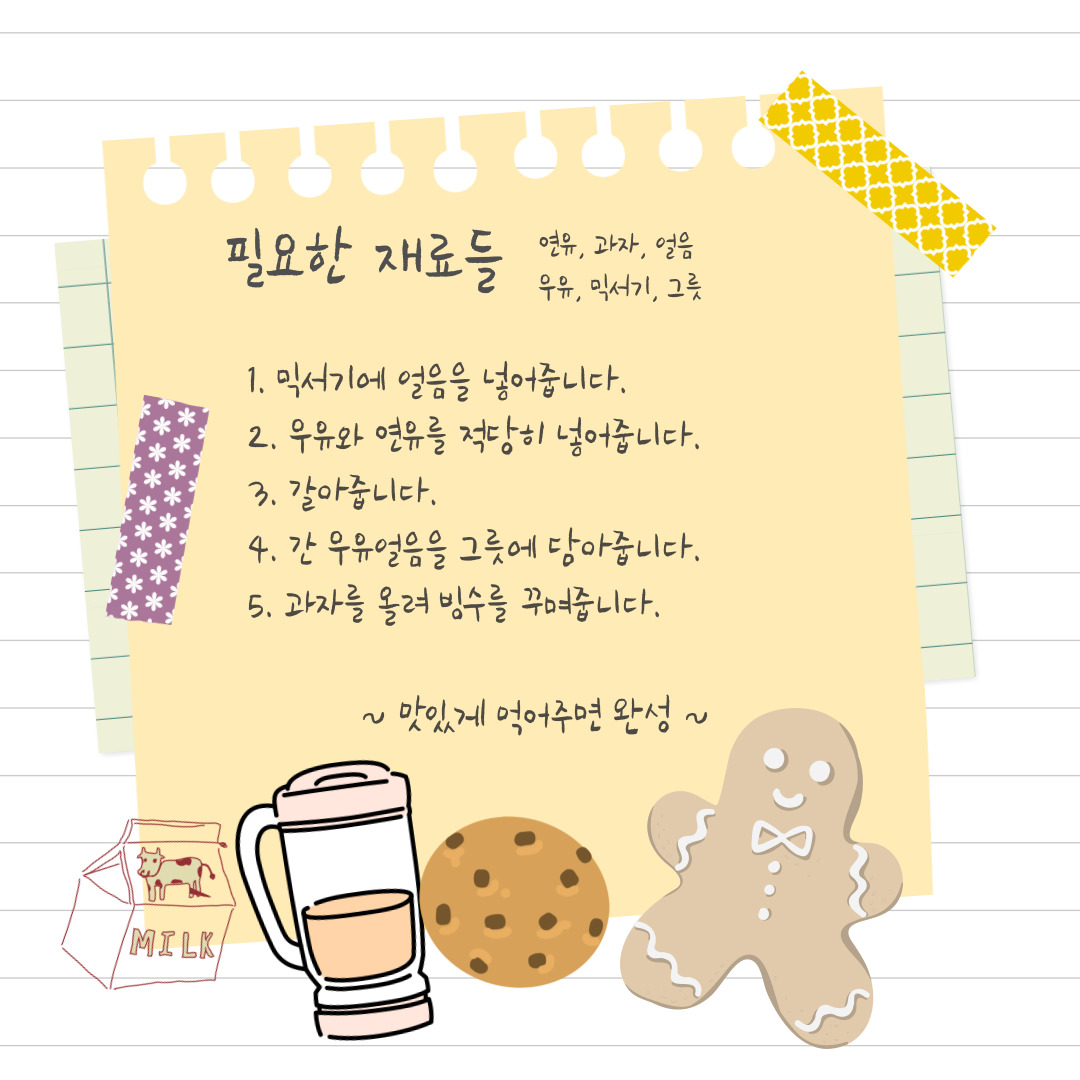 필요한 재료들
연유, 과자, 얼음
우유, 믹서기, 그릇
1. 믹서기에 얼음을 넣어줍니다.
2. 우유와 연유를 적당히 넣어줍니다.
3. 갈아줍니다.
4. 간 우유얼음을 그릇에 담아줍니다.
5. 과자를 올려 빙수를 꾸며줍니다.
~ 맛있게 먹어주면 완성 ~
MILK